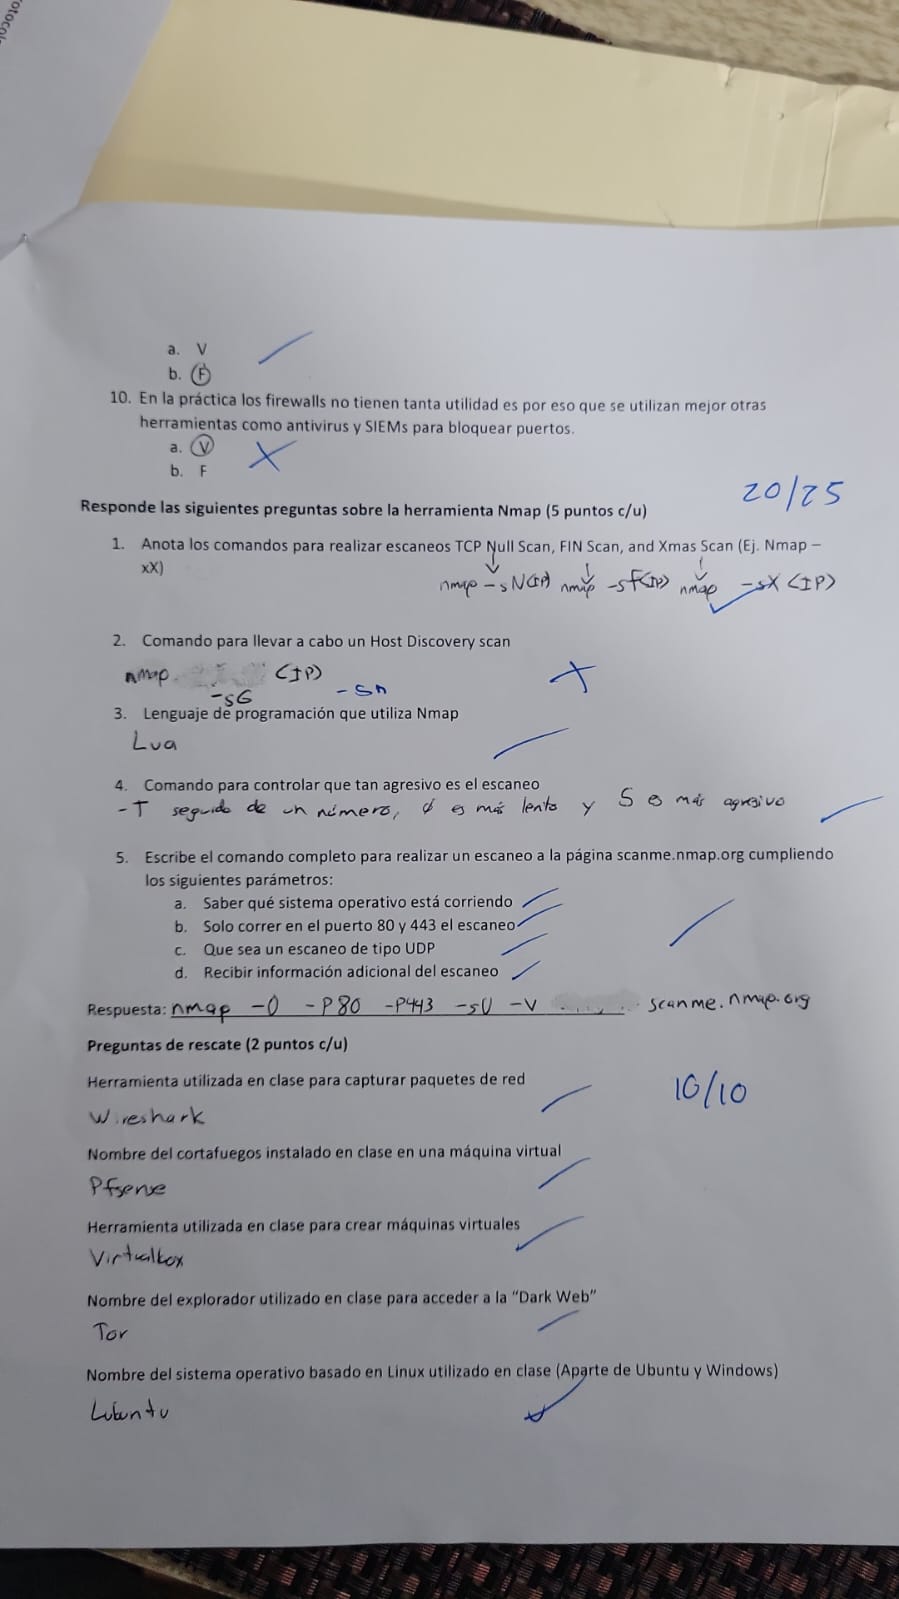 a. V
b. F
10. En la práctica los firewalls no tienen tanta utilidad es por eso que se utilizan mejor otras
herramientas como antivirus y SIEMs para bloquear puertos.
a. V
b. F
20/25
Responde las siguientes preguntas sobre la herramienta Nmap (5 puntos c/u)
1. Anota los comandos para realizar escaneos TCP Null Scan, FIN Scan, and Xmas Scan (Ej. Nmap –
xX)
nmap -sN(IP) nmap -sF(IP) nmap -sX (IP)
2. Comando para llevar a cabo un Host Discovery scan
nmap (IP)
-sG -sn
3. Lenguaje de programación que utiliza Nmap
Lua
4. Comando para controlar que tan agresivo es el escaneo
-T seguido de un número, 0 es más lento y 5 es más agresivo
5. Escribe el comando completo para realizar un escaneo a la página scanme.nmap.org cumpliendo
los siguientes parámetros:
a. Saber qué sistema operativo está corriendo
b. Solo correr en el puerto 80 y 443 el escaneo
c. Que sea un escaneo de tipo UDP
d. Recibir información adicional del escaneo
Respuesta: nmap -O -P80 -P443 -sU -v scanme.nmap.org
Preguntas de rescate (2 puntos c/u)
Herramienta utilizada en clase para capturar paquetes de red
10/10
Wireshark
Nombre del cortafuegos instalado en clase en una máquina virtual
Pfsense
Herramienta utilizada en clase para crear máquinas virtuales
Virtualbox
Nombre del explorador utilizado en clase para acceder a la “Dark Web”
Tor
Nombre del sistema operativo basado en Linux utilizado en clase (Aparte de Ubuntu y Windows)
Lubuntu